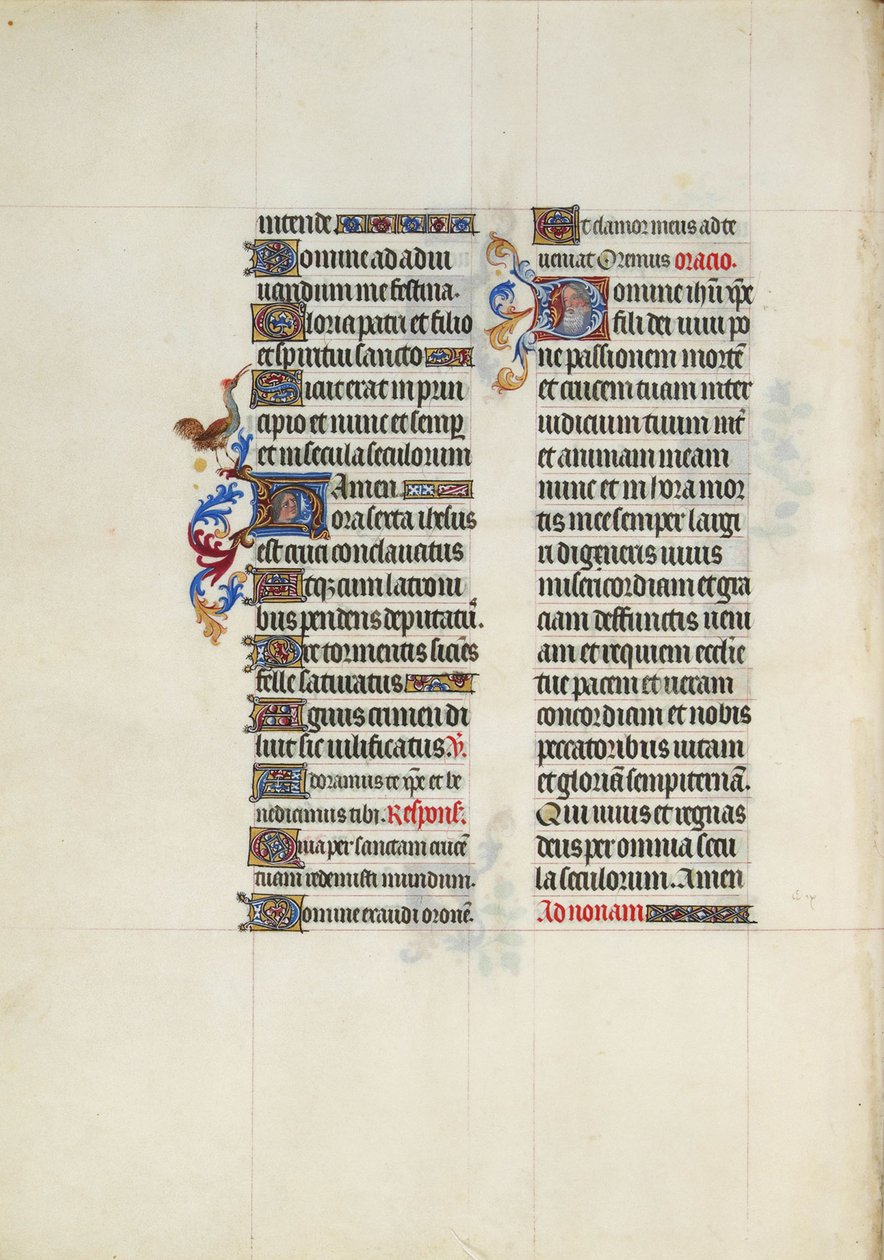 intende
Domine ad adiu
uandum me festina.
Gloria patri et filio
et spiritui sancto
Sicut erat in prin
cipio et nunc et semp̲
et in secula seculorum
Amen.
Hora sexta ihesus
est cruci conclauatus
Atq; cum latroni
bus pendens deputatu᷑.
Pre tormentis siciēs
felle saturatus
Agnus crimen di
luit sic uilificatus. V̷.
Adoramus te xp̄e et be
nedicimus tibi. Respons̄.
Quia per sanctam crucē
tuam redemisti mundum.
Domine exaudi oronē.
Et clamor meus ad te
ueniat Oremus oracio.
Domine ihū xp̄e
fili dei uiui po
ne passionem mortē
et crucem tuam inter
iudicium tuum int̄
et animam meam
nunc et in hora mor
tis mee semper largi
ri digneris uiuis
misericordiam et gra
ciam deffunctis ueni
am et requiem ecclie
tue pacem et ueram
concordiam et nobis
peccatoribus uitam
et gloriā sempiternā.
Qui uiuis et regnas
deus per omnia secu
la seculorum. Amen
Ad nonam